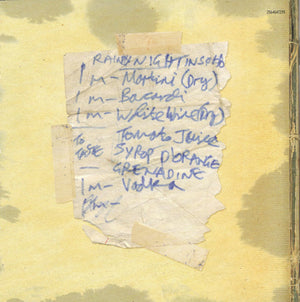 RAINYNIGHTINSOHO
1 m - Martini (Dry)
1 m - Bacardi
1 m - White Wine (Dry)
To TASTE Tomato Juice
SYROP D'ORANGE
- GRENADINE
1 m - Vodka